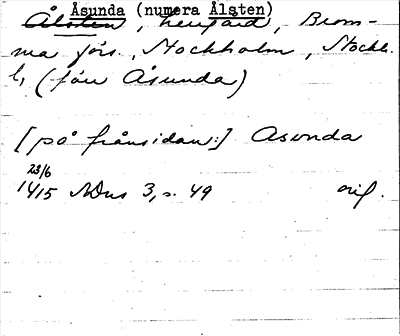 Åsunda (numera Ålsten)
Ålsten, herrgård, Brom-
ma förs., Stockholm, Stockh.
l, (förr Åsunda)
[på frånsidan:] Asunda
23/6
1415 NDns 3, s. 49 orig.